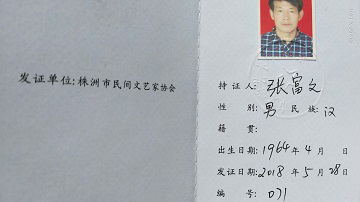 发证单位:株洲市民间文艺家协会
持证人:张富文
性别:男 民族:汉
籍贯:
出生日期:1964年4月 日
发证日期:2018年5月28日
编号:071